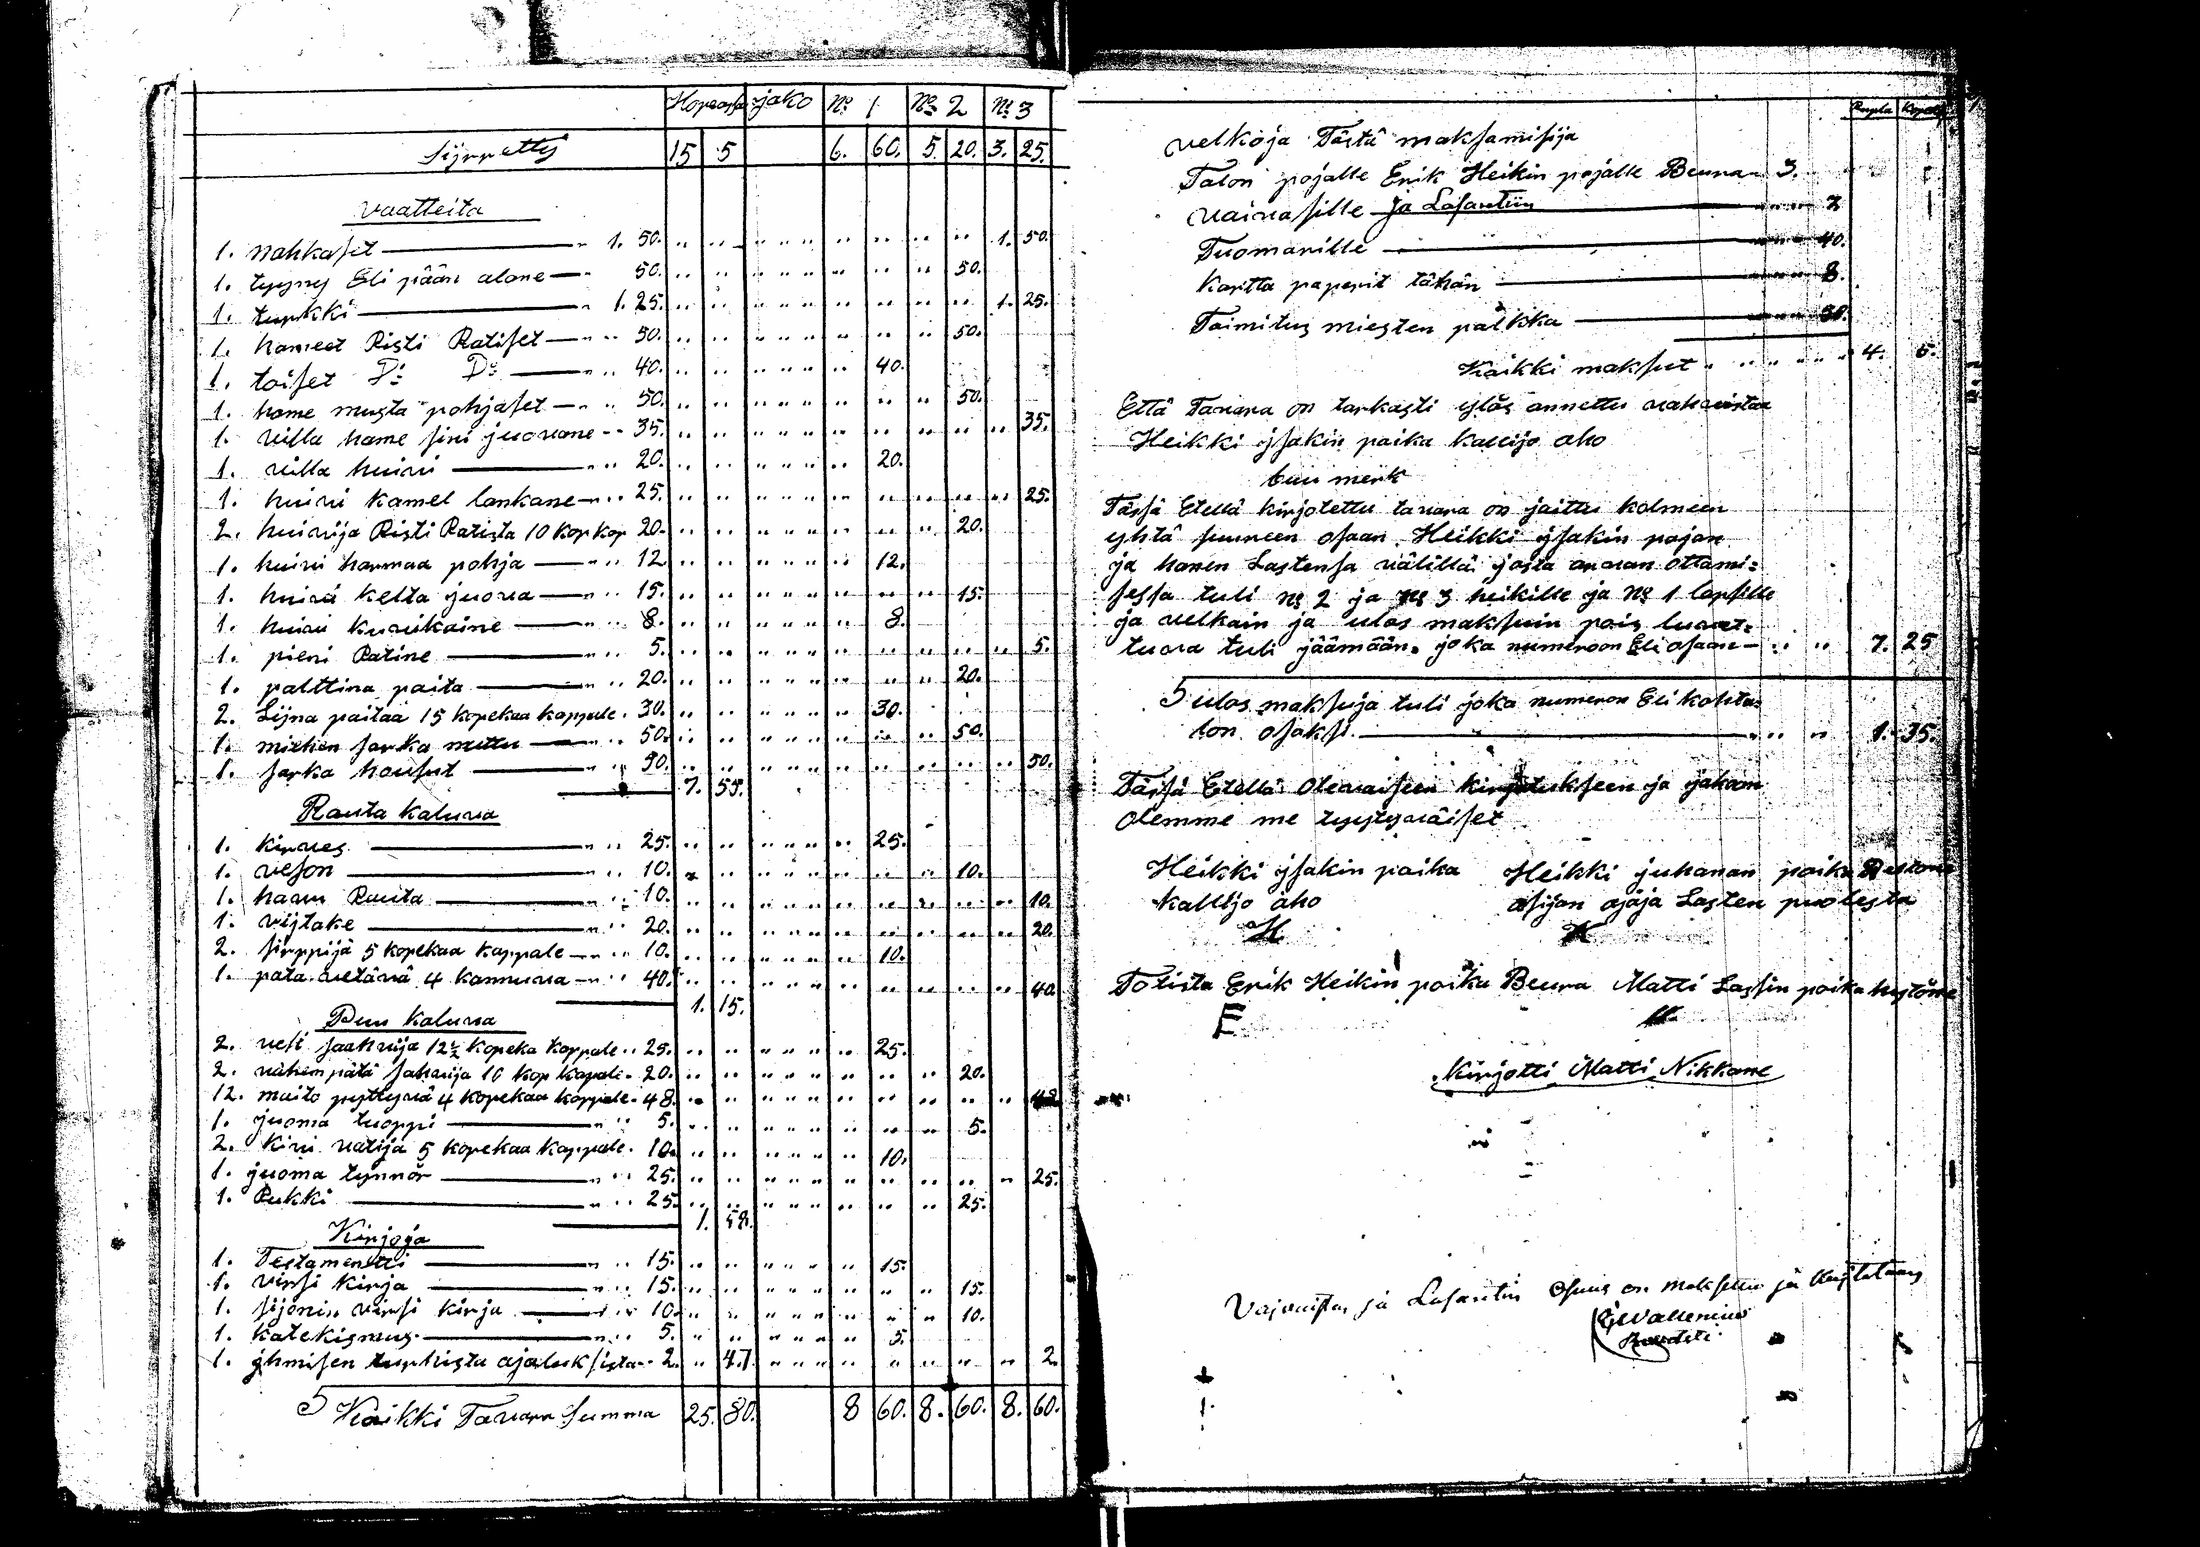 Hopeassa jako No 1 No 2 No 3
Sijrretty 15 5 6. 60. 5. 20. 3. 25.
Vaatteita
1. nahkaset 1. 50. 1. 50.
1. tyyny Eli pään alane 50. 50.
1. turkki 1. 25. 1. 25.
1. hameet Risti Ratiset 50. 50.
1. toiset Do Do 40. 40.
1. hame musta pohjaset 50. 50.
1. villa hame sini juovane 35. 35.
1. villa huivi 20. 20.
1. huivi kamel lankane 25. 25.
2. huivija Risti Ratista 10 kop kop 20. 20.
1. huivi harmaa pohja 12. 12.
1. huivi kelta juova 15. 15.
1. huivi kuvikaine 8. 8.
1. pieni Ratine 5. 5.
1. palttina paita 20. 20.
2. Lijna paitaa 15 kopekaa kappale 30. 30.
1. miehen sarka nuttu 50. 50.
1. sarka housut 50. 50.
7. 55.
Rauta kaluva
1. kirves 25. 25.
1. veson 10. 10.
1. haavu Rauta 10. 10.
1. vijtake 20. 20.
2. sirppijä 5 kopekaa kappale 10. 10.
1. pata vetävä 4 kannuva 40. 40.
1. 15.
Puu kaluva
2. vesi saahvija 12½ kopeka kappale 25. 25.
2. vähempätä sahvija 10 kop kapale 20. 20.
12. maito pyttyvä 4 kopekaa kappale 48. 48.
1. juoma tuoppi 5. 5.
2. kivi vatija 5 kopekaa kappale 10. 10.
1. juoma tynnör 25. 25.
1. Rukki 25. 25.
1. 58.
Kirjoja
1. Testamentti 15. 15.
1. virsi kirja 15. 15.
1. sijonin virsi kirja 10. 10.
1. katekismus 5. 5.
1. jhmisen turhista ajatuksista 2. 47 2.
Kaikki Tavara summa 25. 80. 8 60. 8. 60. 8. 60.
Rupla Kopek
velkoja Tästä maksamisija
Talon pojalle Erik Heikin pojalle Beura 3.
vaivasille ja Lasarettiin
Tuomarille 40.
Kartta paperit tähän 8.
Toimitus miesten palkka
Kaikki maksut 4. 5.
Että Tavara on tarkasti ylös annettu vahvistaa
Heikki jsakin poika kallijo aho
buu merk
Tässä Etellä kirjotettu tavara on jaittu kolmeen
yhtä suureen osaan Heikki jsakin pojan
ja hänen Lastensa välillä josta arvan ottami=
sessa tuli No 2 ja No 3 heikille ja No 1 lapsille
ja velkain ja ulos maksuin pois luvat=
tuva tuli jäämään joka numeroon Eli osaan 7. 25
ulos maksuja tuli joka numeron Eli kohta=
lon osaksi 1. 35.
Tässä Etellä Olevaiseen kirjotukseen ja jakoon
Olemme me tyytyväiset
Heikki jsakin poika Heikki juhanan poika
kallijo aho asijan ajaja Lasten puolesta
H H
Totista Erik Heikin poika Beura Matti Lassin poika
E M
Kirjotti Matti Nikkane
Vajvaisten ja Lasaretin Osuus on maksettu ja kujtataan
Wallenius